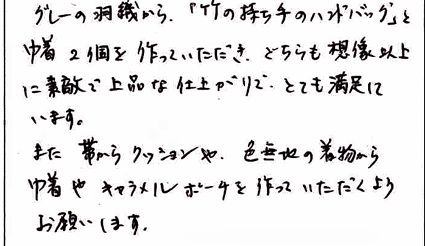 グレーの羽織から、「竹の持ち手のハンドバッグ」と
巾着 2個を作っていただき、どちらも想像以上
に素敵で上品な仕上がりで、とても満足して
います。
また 帯から クッションや、色無地の着物から
巾着や キャラメルポーチを作っていただくよう
お願いします。